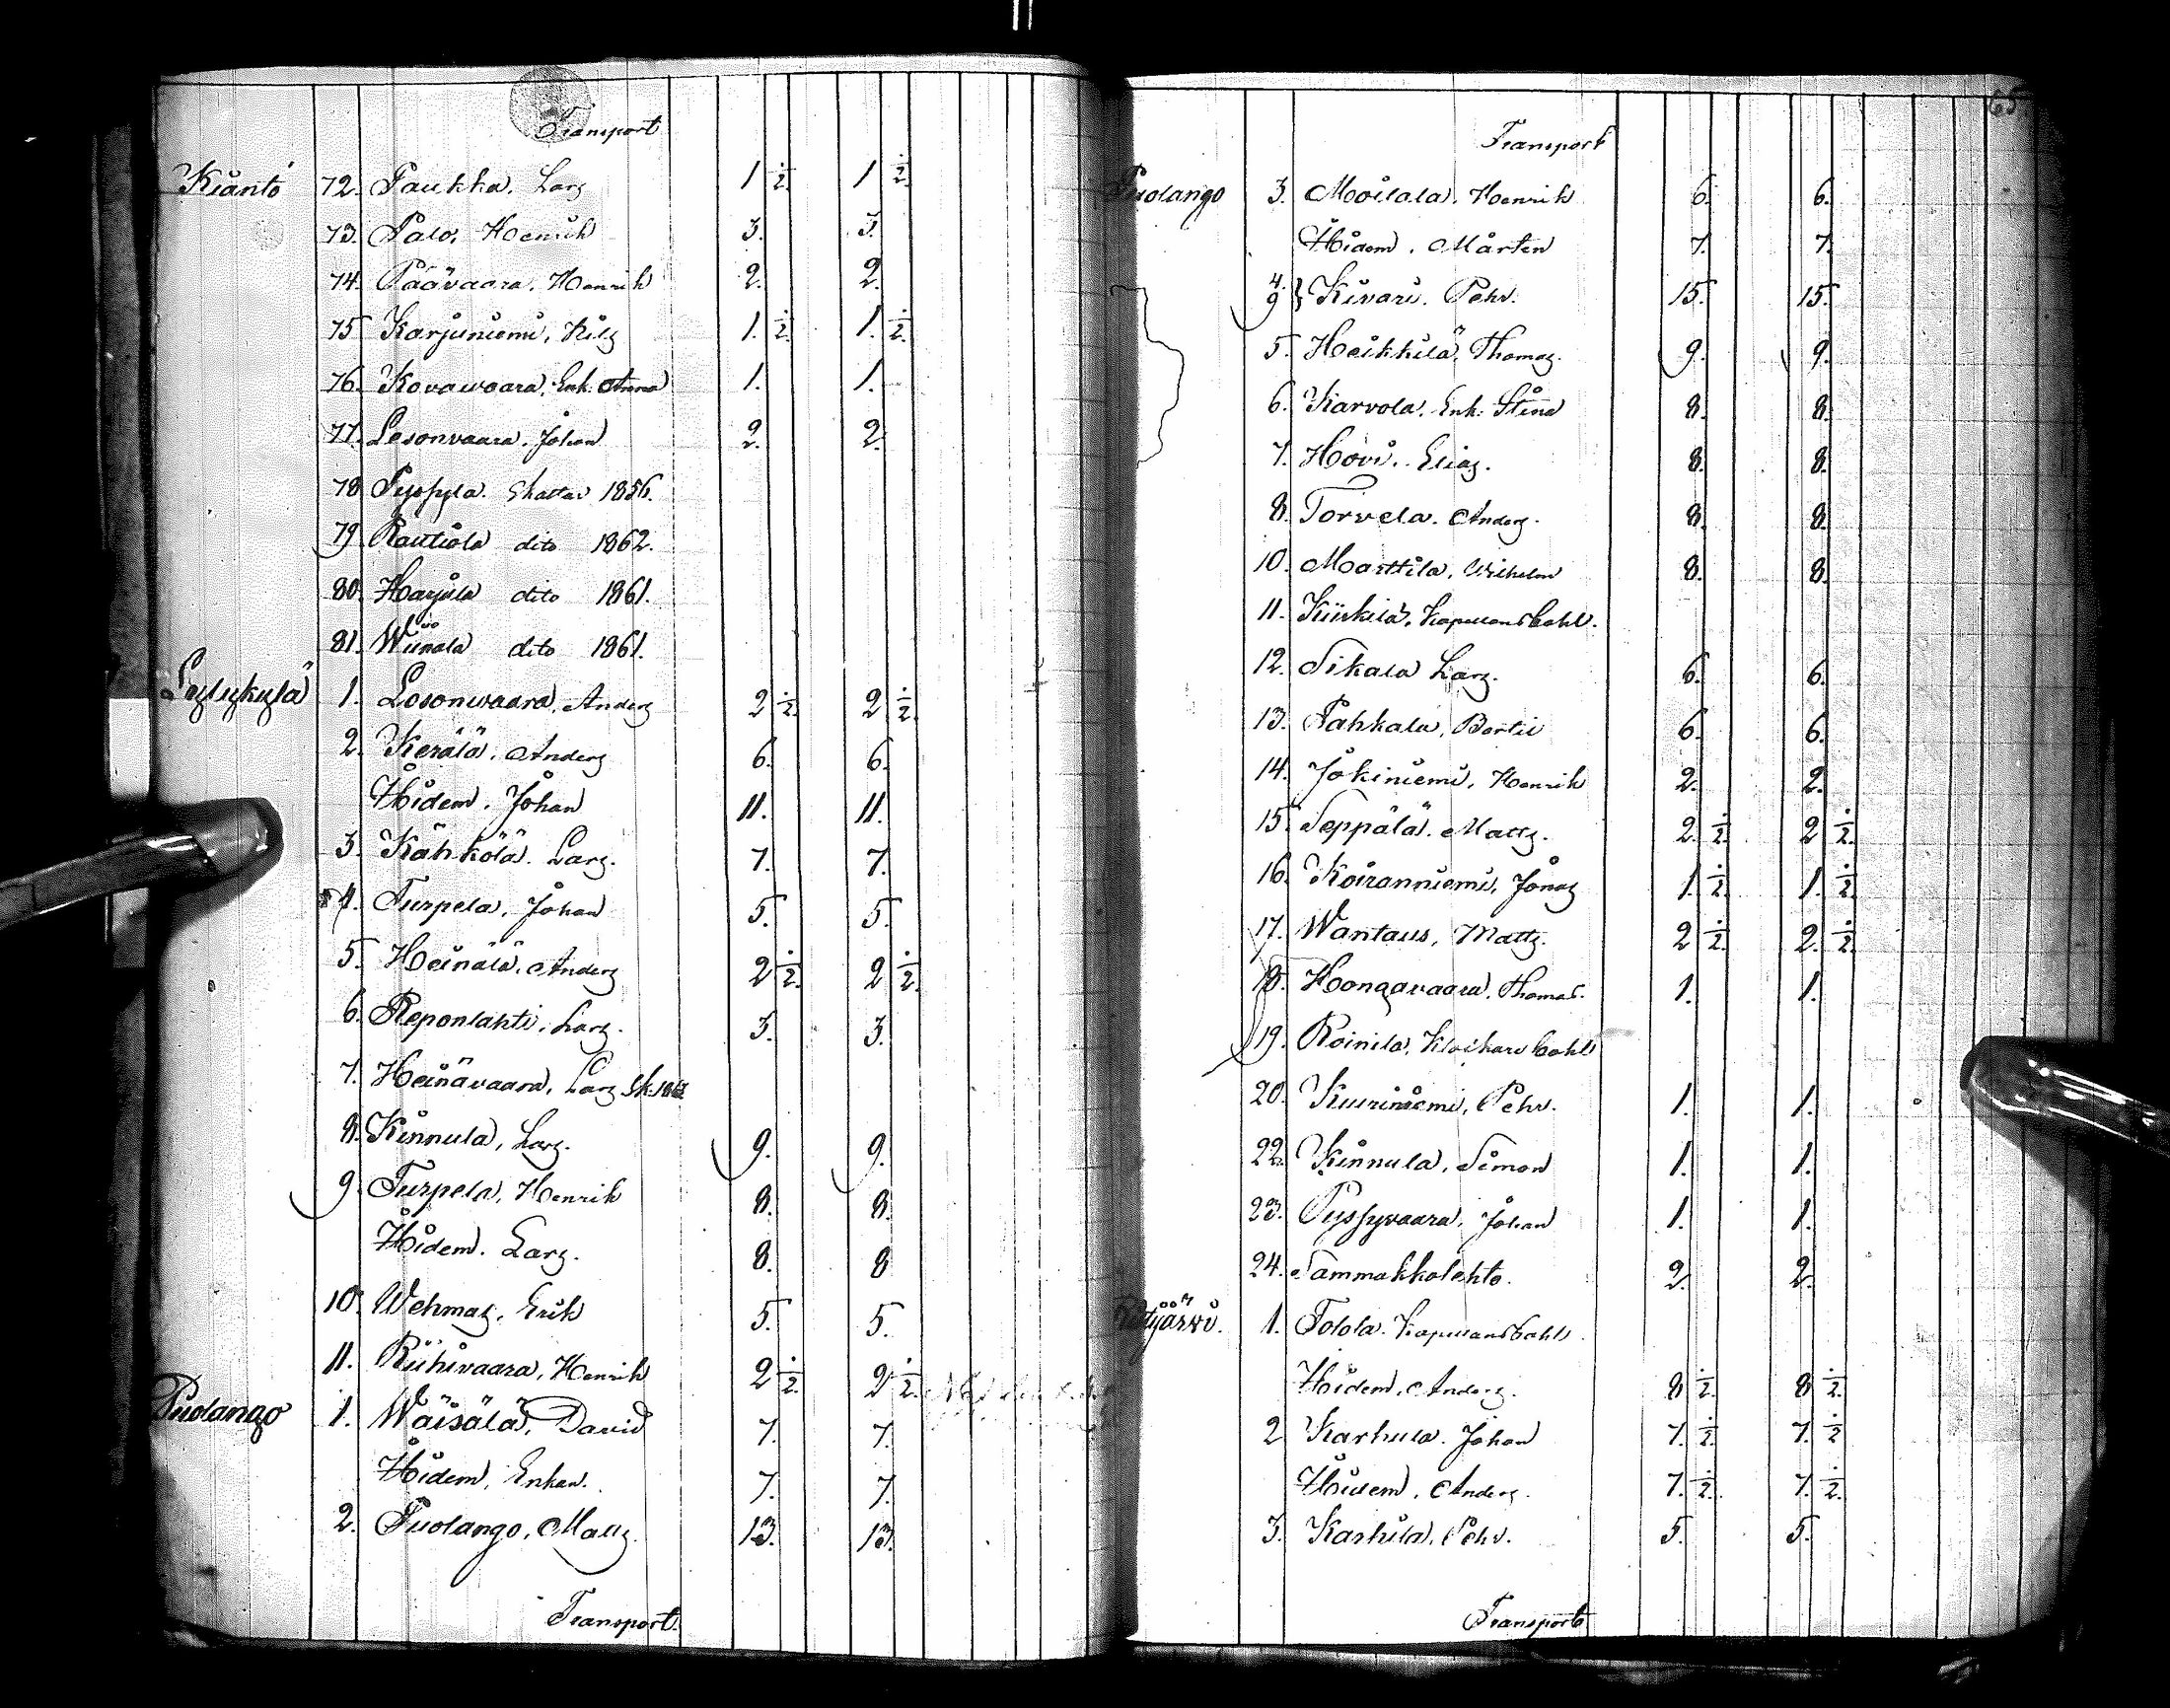 Transport
Kianto 72. Paukka, Lars 1 ½ 1 ½
73. Palo, Henrik 3. 3.
74. Päävaara, Henrik 2. 2.
75 Karjuniemi, Nils 1. ½ 1. ½
76. Kovawaara, Enk. Anna 1. 1.
77. Lesonvaara, Johan 2. 2
78 Pyssylä. Skattar 1856.
79 Rautiola dito 1862.
80. Harjula dito 1861.
81. Wiinala dito 1861.
1. Losonwaara, Anders 2 ½ 2 ½
2. Kerälä, Anders 6. 6.
Hidem, Johan 11. 11.
3. Kähkölä. Lars. 7. 7.
4. Turpela, Johan 5. 5.
5. Heinälä, Anders 2 ½ 2 ½
6. Reponlahti, Lars. 3. 3.
7. Heinävaara, Lars Sk.
8. Kinnula, Lars. 9. 9.
9 Turpela, Henrik 8. 8.
Hidem. Lars. 8. 8
10. Wehmas, Erik 5. 5.
11. Riihivaara, Henrik 2 ½ 2 ½
Puolango 1. Wäisälä, David 7. 7.
Hidem, Enkan. 7. 7.
2. Puolango, Matts. 13. 13.
Transport.
65
Transport
Puolango 3. Moilala, Henrik 6. 6.
Hidem, Mårten 7. 7.
4. 9 } Kivari. Pehr. 15. 15.
5. Heikkilä, Thomas. 9. 9.
6. Karvola, Enk. Stina 8. 8.
7. Hovi. Elias. 8. 8.
8. Torvela. Anders. 8. 8.
10. Marttila, Wilhelm 8. 8.
11. Kiiskilä, Kapellansbohl.
12. Sikala Lars. 6. 6.
13. Pahkala, Bertil 6. 6.
14. Jokiniemi, Henrik 2. 2.
15. Seppälä. Matts. 2. ½ 2 ½
16. Koiranniemi, Jonas 1. ½ 1. ½
17. Wantaus, Matts. 2 ½ 2. ½
18. Hongavaara, Thomas. 1. 1.
19. Roinila, Klockarebohl
20. Kuiriniemi, Pehr. 1. 1.
22. Kinnula, Simon 1. 1.
23. Pyssyvaara, Johan 1. 1.
24. Sammakkolehto. 2. 2.
1. Tolola. Kapellansbohl.
Hidem, Anders. 8 ½ 8 ½
2 Karhula. Johan 7. ½ 7. ½
Hidem, Anders. 7. ½ 7. ½
3. Karhula, Pehr. 5. 5.
Transport